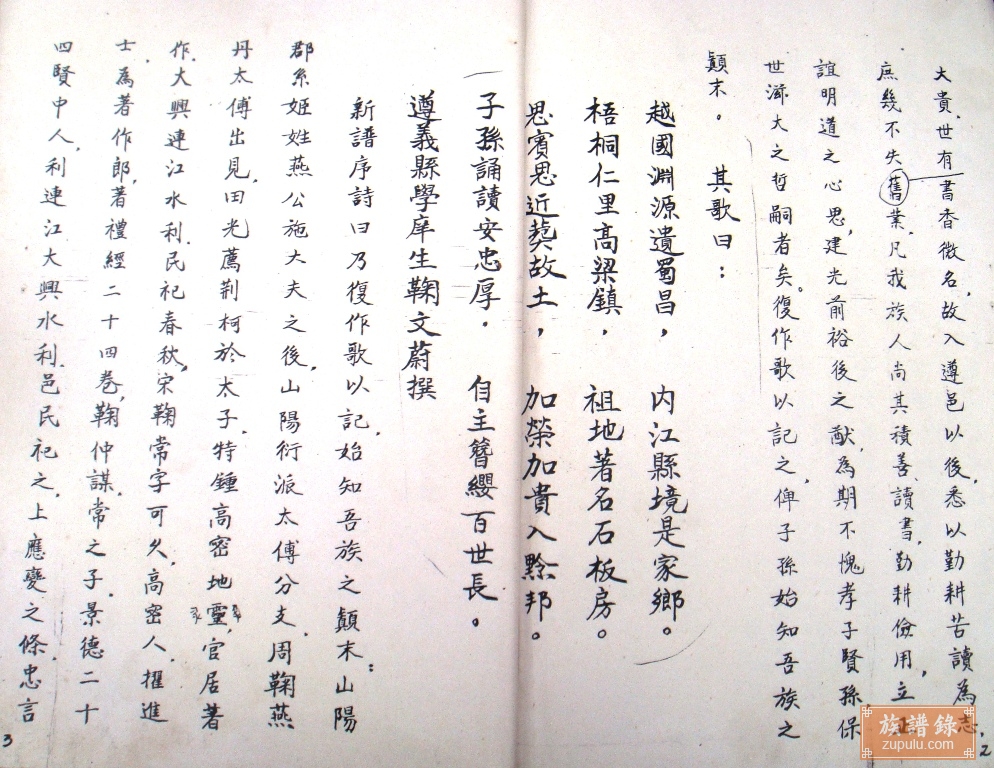 大貴,世有書香微名,故入遵邑以後,悉以勤耕苦讀為志,
庶幾不失舊業.凡我族人尚其積善讀書,勤耕儉用,立
誼明道之心思,建光前裕後之猷,為期不愧孝子賢孫保
世滋大之哲嗣者矣。復作歌以記之,俾子孫始知吾族之
顛末。其歌曰:
越國淵源遺蜀昌,內江縣境是家鄉。
梧桐仁里高梁鎮,祖地著名石板房。
思賓思近葬故土,加榮加貴入黔邦。
子孫誦讀安忠厚.自主簪纓百世長。
遵義縣學庠生鞠文蔚撰
新譜序詩曰乃復作歌以記.始知吾族之顛末:山陽
郡系姬姓燕公施大夫之後,山陽衍派太傅分支.周鞠燕
丹太傅出見,田光薦荆柯於太子.特鍾高密地靈,官居著
作.大興連江水利.民祀春秋,宋鞠常字可久,高密人.擢進
士.為著作郎,著禮經二十四卷,鞠仲謀.常之子.景德二十
四賢中人,利連江大興水利.邑民祀之.上應變之條.忠言
2
3
族譜錄
zupulu.com